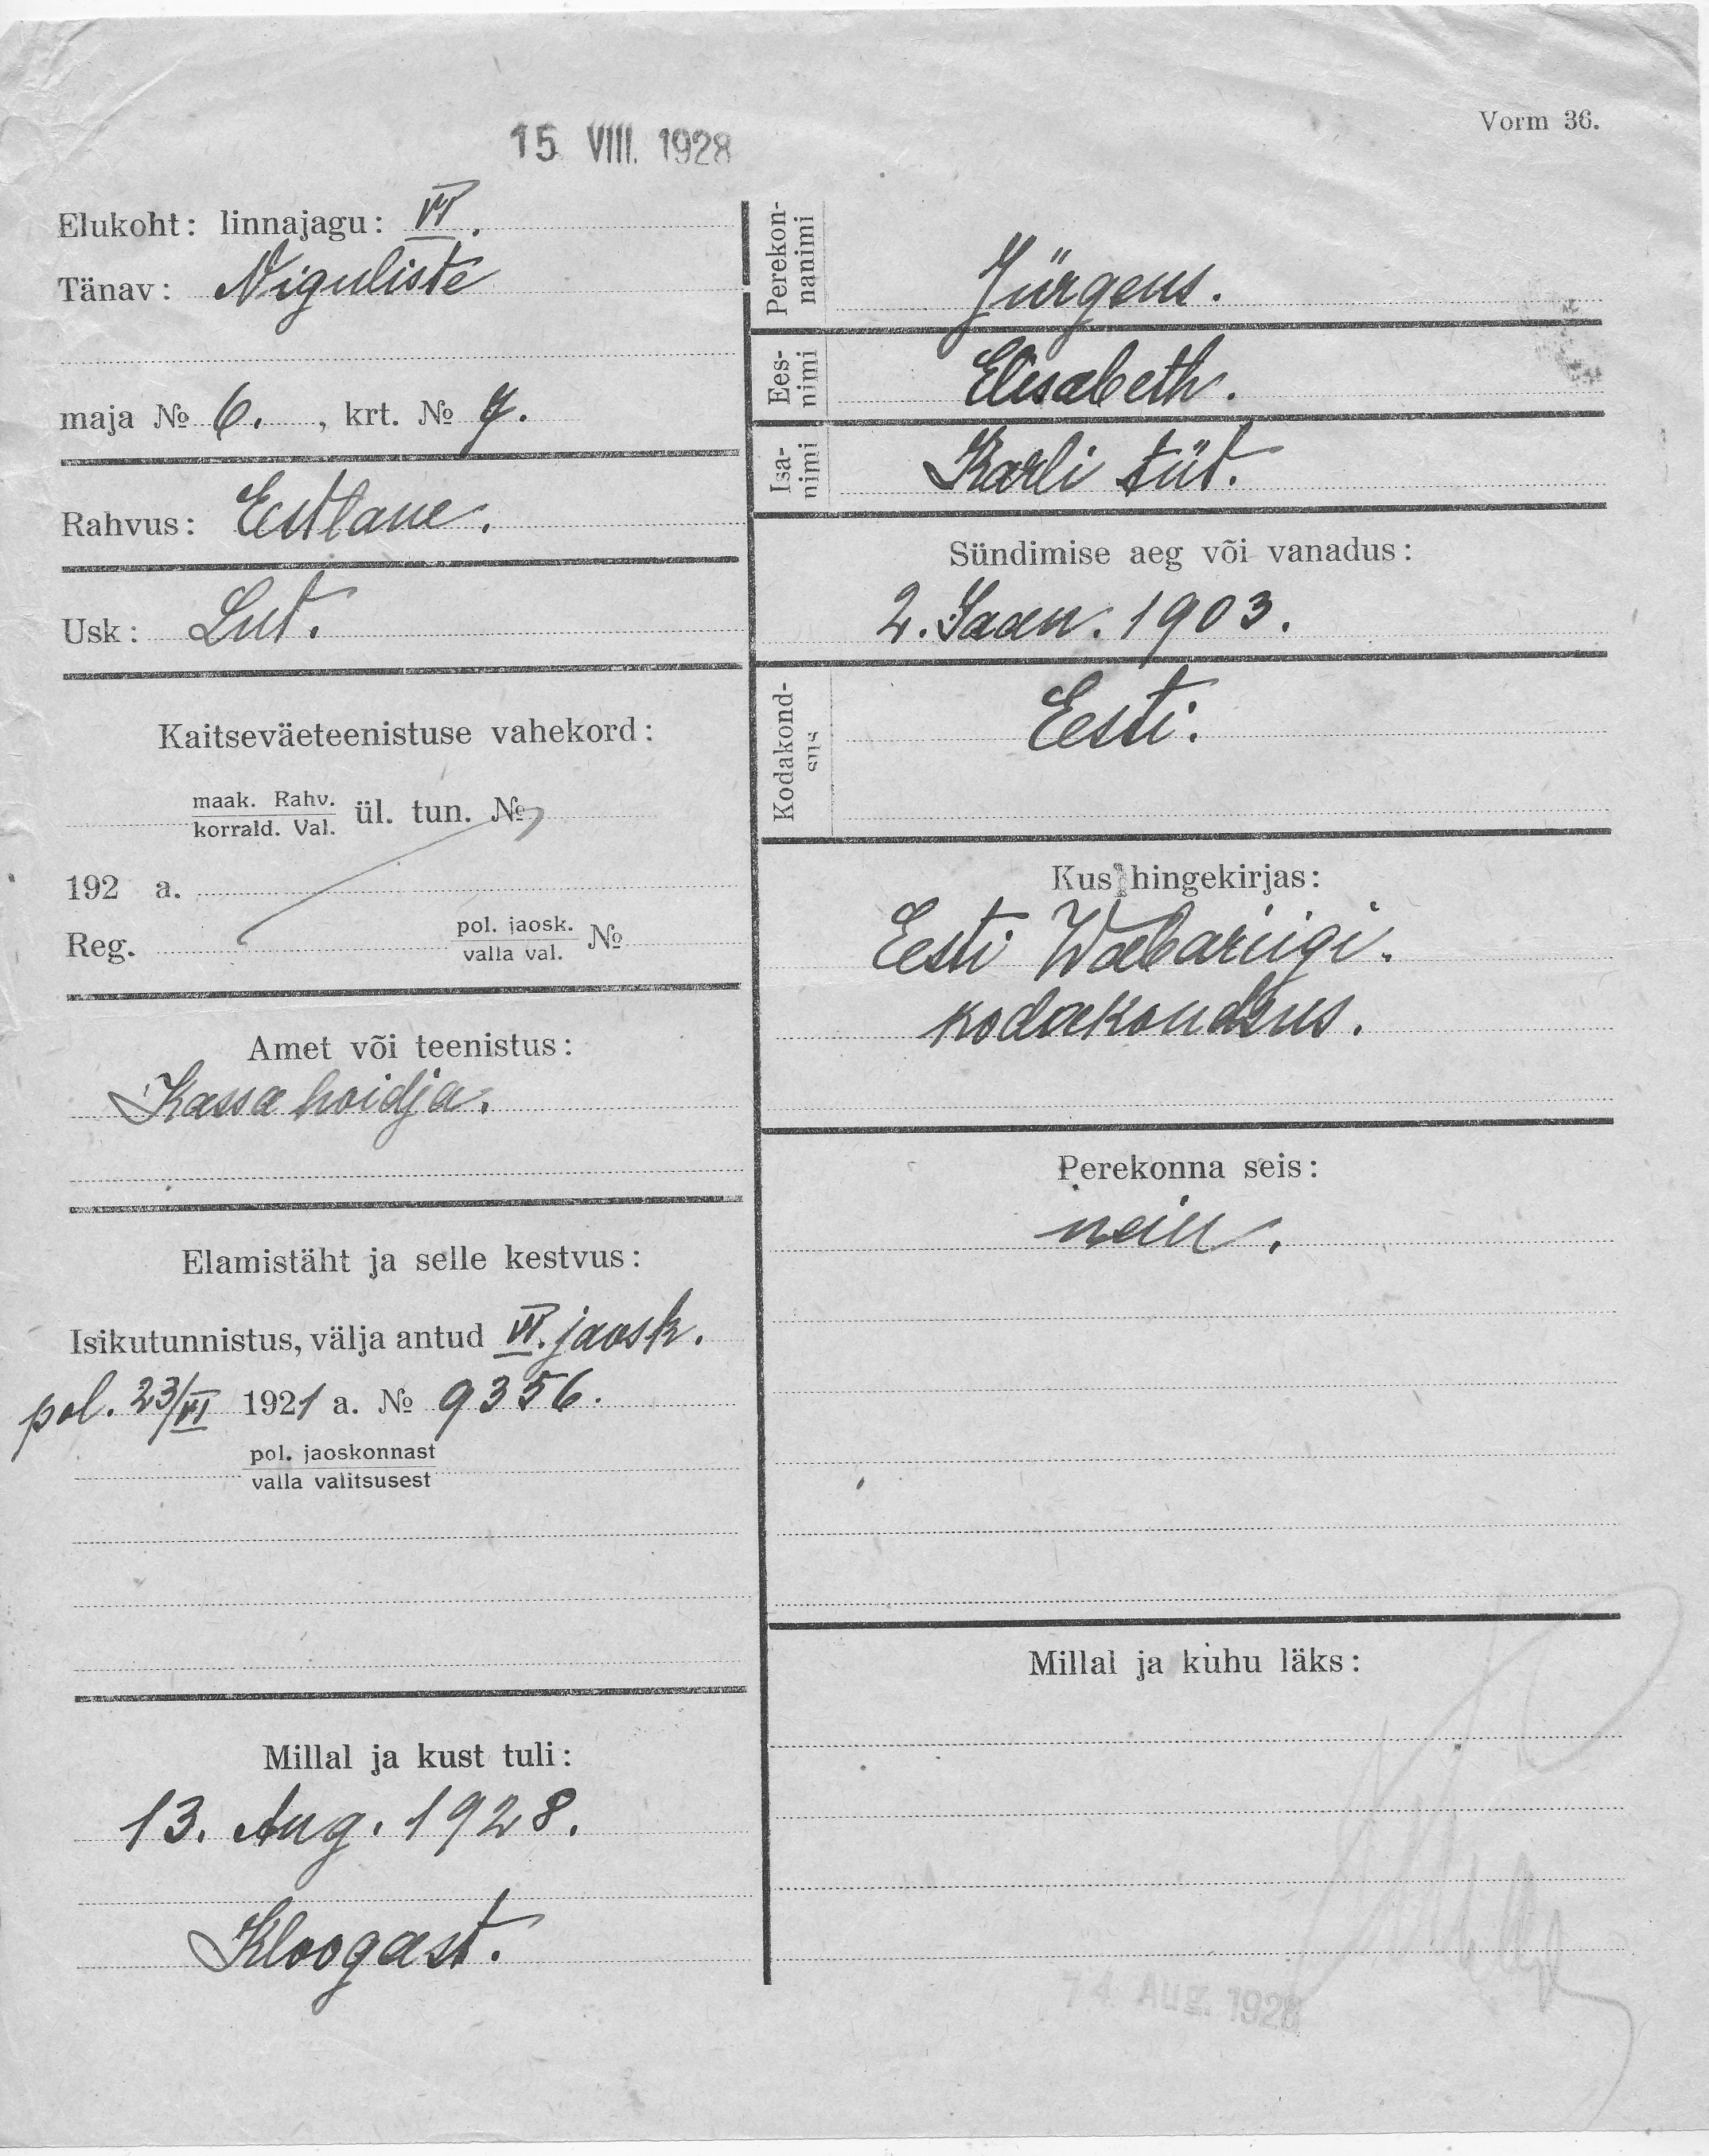 15 VIII. 1928
Vorm 36.
Elukoht: linnajagu: VI.
Tänav: Niguliste
maja № 6. , krt. № 7.
Rahvus: Estlane.
Usk: Lut.
Kaitseväeteenistuse vahekord:
maak. Rahv.
korrald. Val. ül. tun. №
192 a.
Reg. pol. jaosk. №
valla val.
Amet või teenistus:
Kassa hoidja.
Elamistäht ja selle kestvus:
Isikutunnistus, välja antud VI. jaosk.
pol. 23/VI 1921 a. № 9356.
pol. jaoskonnast
valla valitsusest
Millal ja kust tuli:
13. Aug. 1928.
Kloogast.
Perekon-
nanimi
Jürgens.
Ees-
nimi
Elisabeth.
Isa-
nimi
Karli tüt.
Sündimise aeg või vanadus:
2. Jaan. 1903.
Kodakond-
sus
Eesti.
Kus hingekirjas:
Eesti Wabariigi.
kodakondsus.
Perekonna seis:
neiu.
Millal ja kuhu läks:
14 Aug. 1928